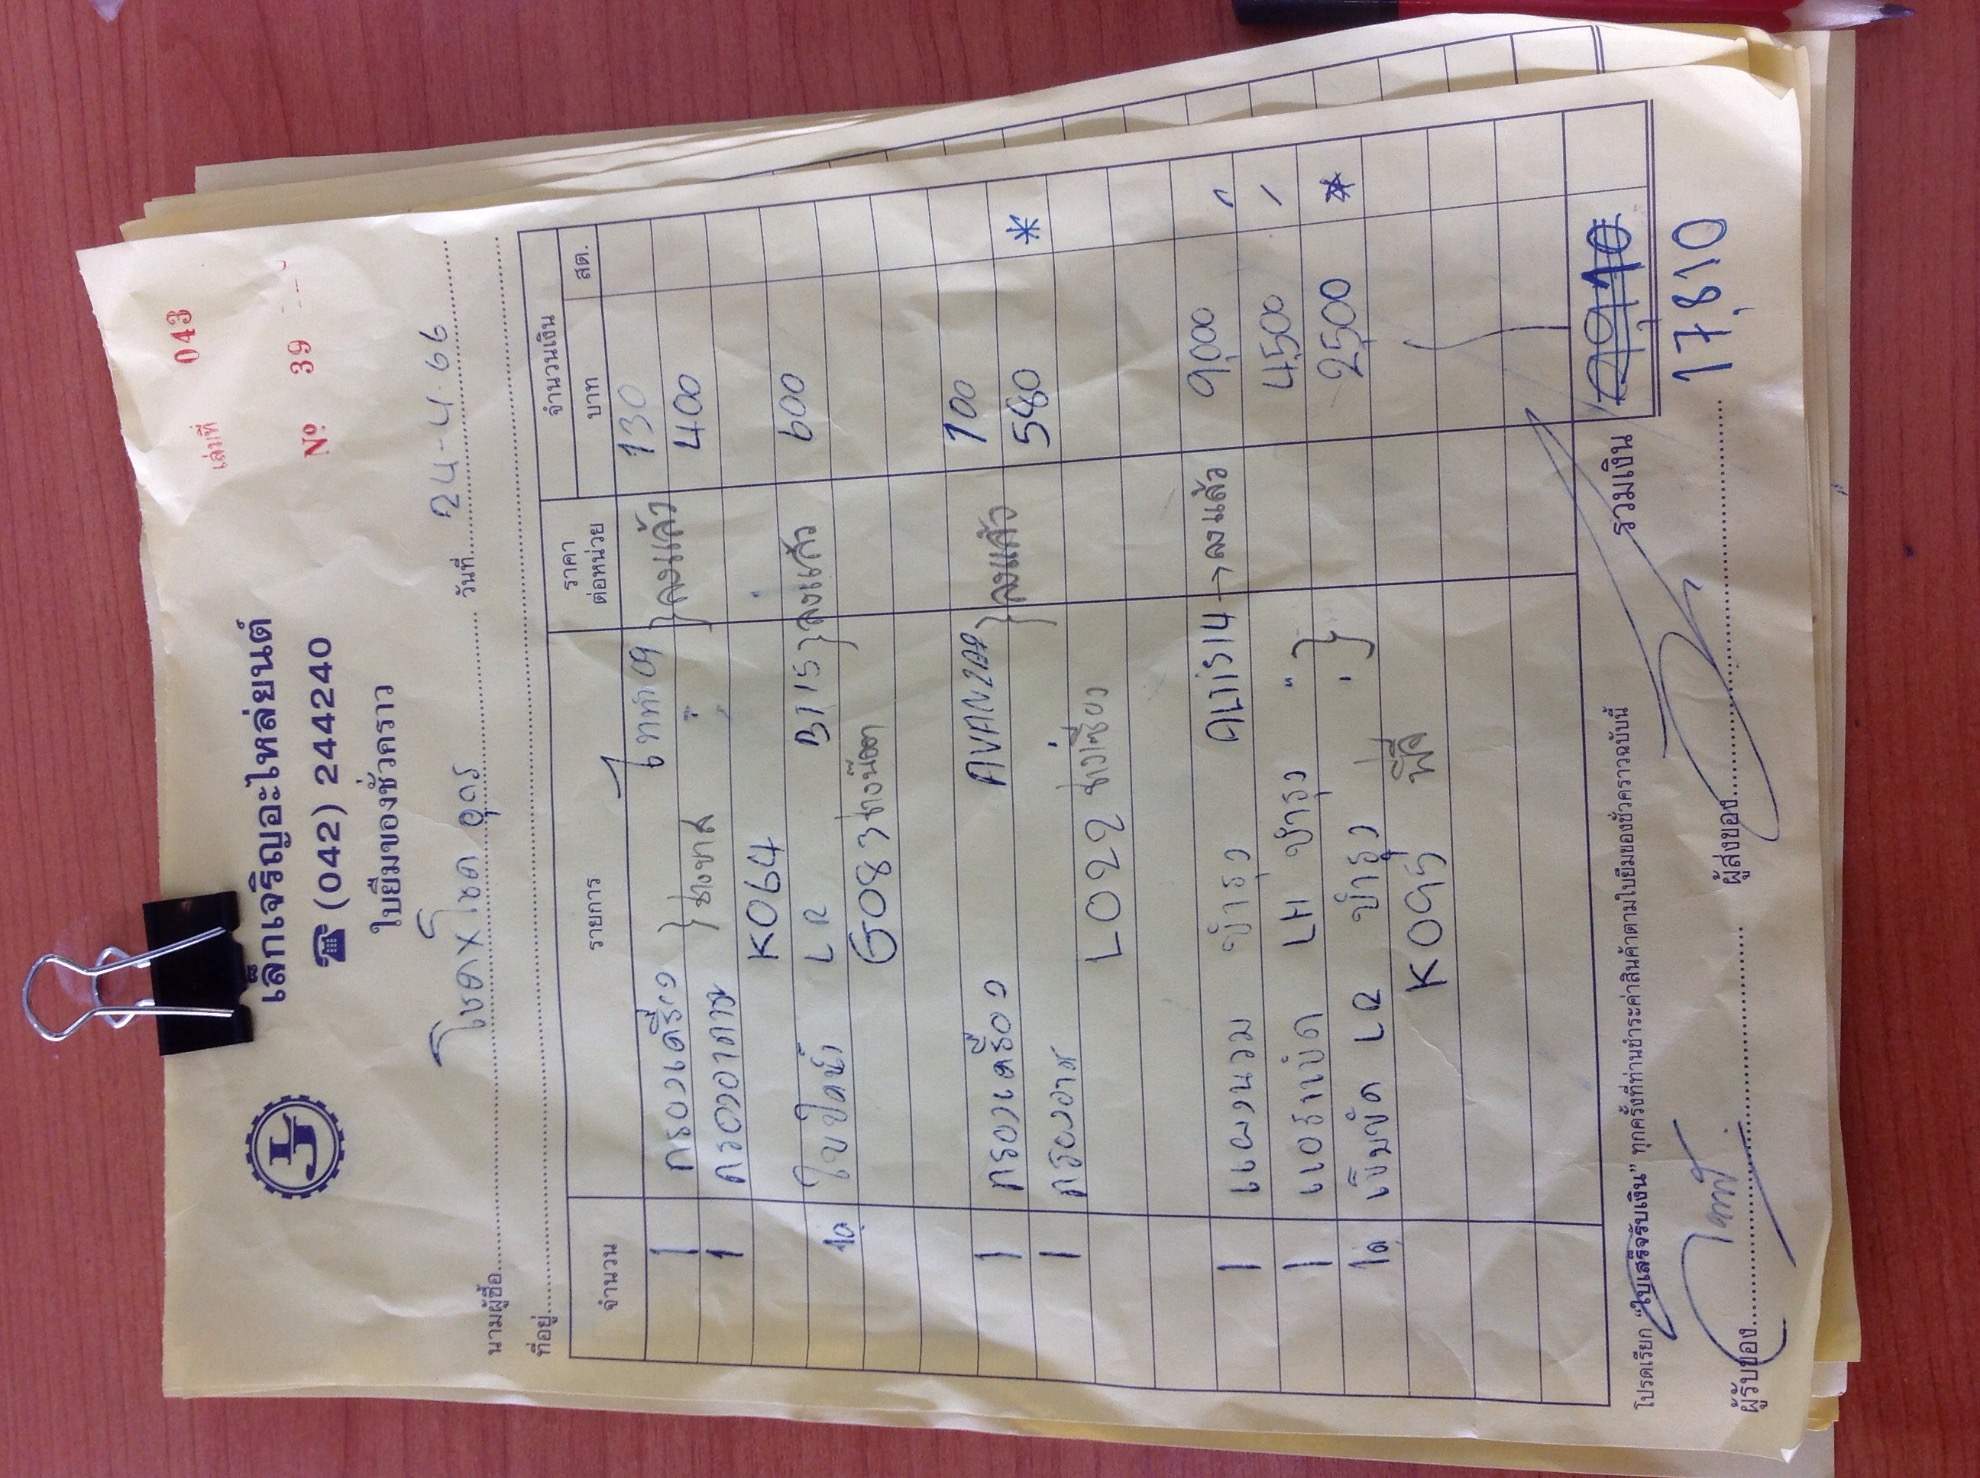 เล่มที่ 043
เล็กเจริญอะไหล่ยนต์
☎ (042) 244240
Nº 39
ใบยืมของชั่วคราว
นามผู้ซื้อ โชคxโชค อุดร วันที่ 24-4-66
ที่อยู่
จำนวน รายการ ราคาต่อหน่วย จำนวนเงิน
บาท สต.
1 กรองเครื่อง 09 130
1 กรองอากาศ } ลงแล้ว 400
K064
ใบปัดน้ำ LR B115 } ลงแล้ว 600
G083
1 กรองเครื่อง AVANZA 100
1 กรองอากาศ } ลงแล้ว 580 *
L022
1 แผงนวม ชำรุด → ลงแล้ว 9,000
1 แอร์แบ็ค LH ชำรุด " 4,500
เข็มขัด LR ชำรุด 2,500 *
K095
รวมเงิน
17,810
โปรดเรียก "ใบเสร็จรับเงิน" ทุกครั้งที่ท่านชำระค่าสินค้าตามใบยืมของชั่วคราวฉบับนี้
ผู้รับของ ผู้ส่งของ